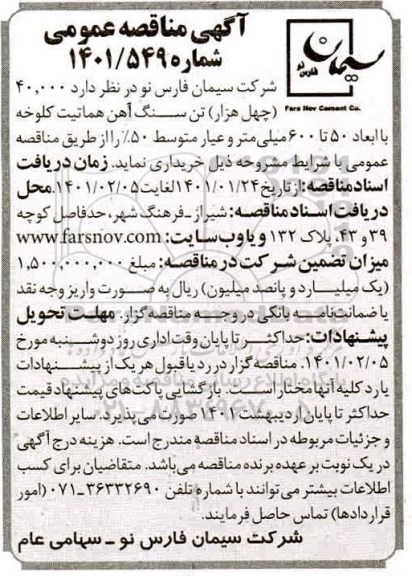 آگهی مناقصه عمومی
شماره ۱۴۰۱/۵۴۹
سیمان
فارس نو
Fars Nov Cement Co.
شرکت سیمان فارس نو در نظر دارد ۴۰,۰۰۰
(چهل هزار) تن سنگ آهن هماتیت کلوخه
با ابعاد ۵۰ تا ۶۰۰ میلی متر و عیار متوسط ۵۰٪ را از طریق مناقصه
عمومی با شرایط مشروحه ذیل خریداری نماید. زمان دریافت
اسناد مناقصه: از تاریخ ۱۴۰۱/۰۱/۲۴ لغایت ۱۴۰۱/۰۲/۰۵. محل
دریافت اسناد مناقصه: شیراز - فرهنگ شهر، حدفاصل کوچه
۳۹ و ۴۳، پلاک ۱۳۲ و یا وب سایت: www.farsnov.com
میزان تضمین شرکت در مناقصه: مبلغ ۱,۵۰۰,۰۰۰,۰۰۰
(یک میلیارد و پانصد میلیون) ریال به صورت واریز وجه نقد
یا ضمانت‌نامه بانکی در وجه مناقصه گزار. مهلت تحویل
پیشنهادات: حداکثر تا پایان وقت اداری روز دوشنبه مورخ
۱۴۰۱/۰۲/۰۵. مناقصه گزار در رد یا قبول هر یک از پیشنهادات
یا رد کلیه آنها مختار است. بازگشایی پاکت‌های پیشنهاد قیمت
حداکثر تا پایان اردیبهشت ۱۴۰۱ صورت می پذیرد. سایر اطلاعات
و جزئیات مربوطه در اسناد مناقصه مندرج است. هزینه درج آگهی
در یک نوبت بر عهده برنده مناقصه می باشد. متقاضیان برای کسب
اطلاعات بیشتر می توانند با شماره تلفن ۳۶۳۳۲۶۹۰-۰۷۱ (امور
قراردادها) تماس حاصل فرمایند.
شرکت سیمان فارس نو - سهامی عام